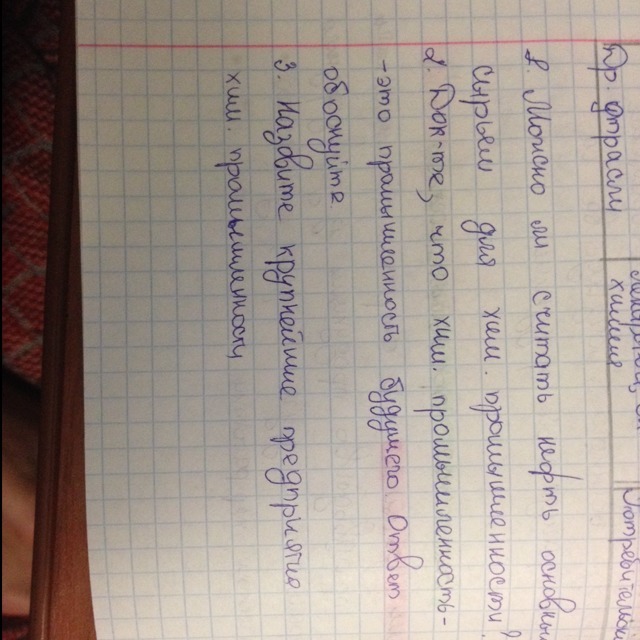 Др. отрасли
химие
Потребители
1. Можно ли считать нефть основным
сурьем для хим. прошышленности
2. Док-те, что хим. промышленность-
-это промышленность будущего. Ответ
обоснуйте
3. Назовите крупнейшие предприятие
хим. промышленности